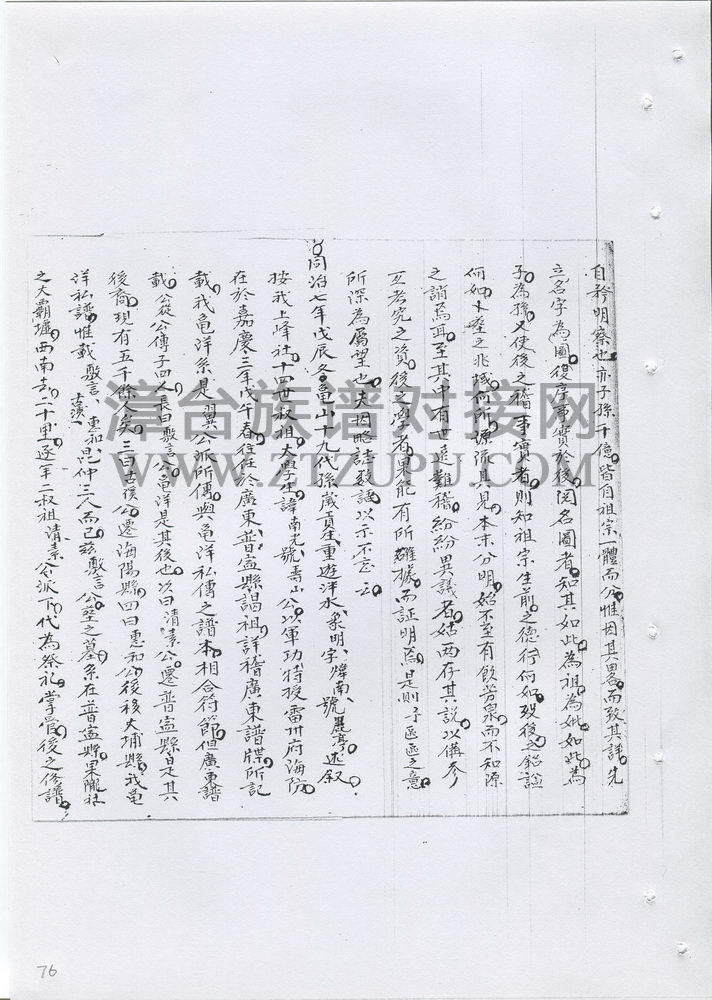 自矜明察也亦子孫千億皆自祖宗一體而分惟因其畧而致其詳先
立名字為圖後序事實於後閱名圖者知其如此為祖為妣如此為
子為孫又使後之稽事實者則知祖宗生前之德行何如歿後之銘誌
何如卜塋之兆域何所源流具見本末分明始不至有飲勞泉而不知源
之誚焉耳至其中有世遠難稽紛紛異議者姑両存其説以俻參
互考究之資後之學者果能有所確據而証明焉是則予區區之意
所深為屬望也夫因略誌数語以示不忘云
同治七年戊辰冬龜山十九代孫歲貢生重遊泮水彖明字煒南號麗亭述叙
按我上峰社十四世叔祖大學生諱南光號壽山公以軍功特授雷州府海防
在於嘉慶三年戊午春往任於廣東普寧縣謁祖詳稽廣東譜牒所記
載我龜洋系是翼公派所傳與龜洋私傳之譜本相合符節但廣東譜
載公從公傳子四人長曰敷言公龜洋是其後也次曰清素公遷普寧縣是其
後裔現有五千餘人矣三曰古溪公遷海陽縣四曰惠和公後移大埔縣我龜
洋私譜惟載敷言古溪惠和昆仲三人而已兹敷言公塋之墓系在普寧縣果隴社
之大霸墟西南去二十里逐年二叔祖清素公派下代為祭祀掌管後之修譜
漳台族谱对接网
WWW.ZTZUPU.COM
76